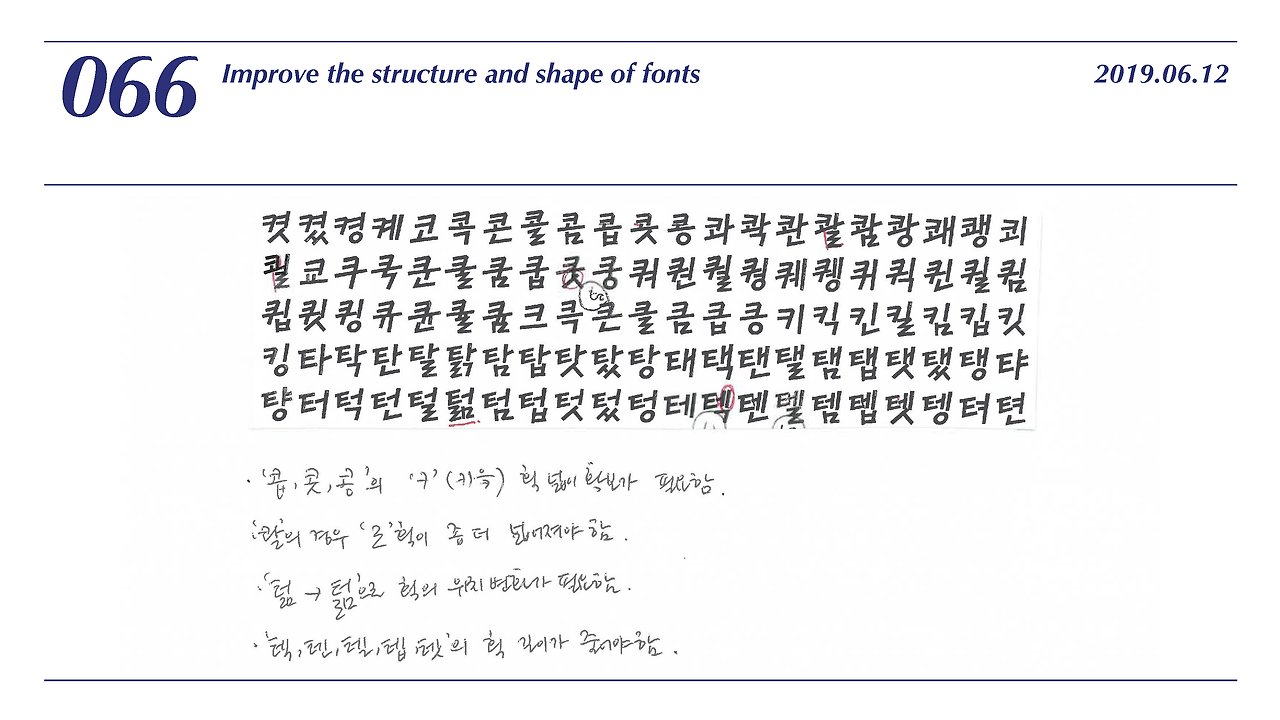 066
Improve the structure and shape of fonts
2019.06.12
켯 켰 경 계 코 콕 콘 콜 콤 콥 콧 콩 콰 콱 콴 콸 쾀 쾅 쾌 쾡 쾨
쾰 쿄 쿠 쿡 쿤 쿨 쿰 쿱 쿳 쿵 쿼 퀀 퀄 퀑 퀘 퀭 퀴 퀵 퀸 퀼 큄
큅 큇 큉 큐 큔 큘 큠 크 큭 큰 클 큼 큽 킁 키 킥 킨 킬 킴 킵 킷
킹 타 탁 탄 탈 탉 탐 탑 탓 탔 탕 태 택 탠 탤 탬 탭 탯 탰 탱 탸
턍 터 턱 턴 털 턺 텀 텁 텃 텄 텅 테 텍 텐 텔 템 텝 텟 텡 텨 텬
· '콥, 콧, 콩'의 'ㅋ' (키읔) 획 넓이 확보가 필요함.
'콸'의 경우 'ㄹ' 획이 좀 더 넓어져야 함.
· '턺 → 턺'으로 획의 위치 변화가 필요함.
· '텍, 텐, 텔, 텝, 텟'의 획 길이가 줄어야 함.